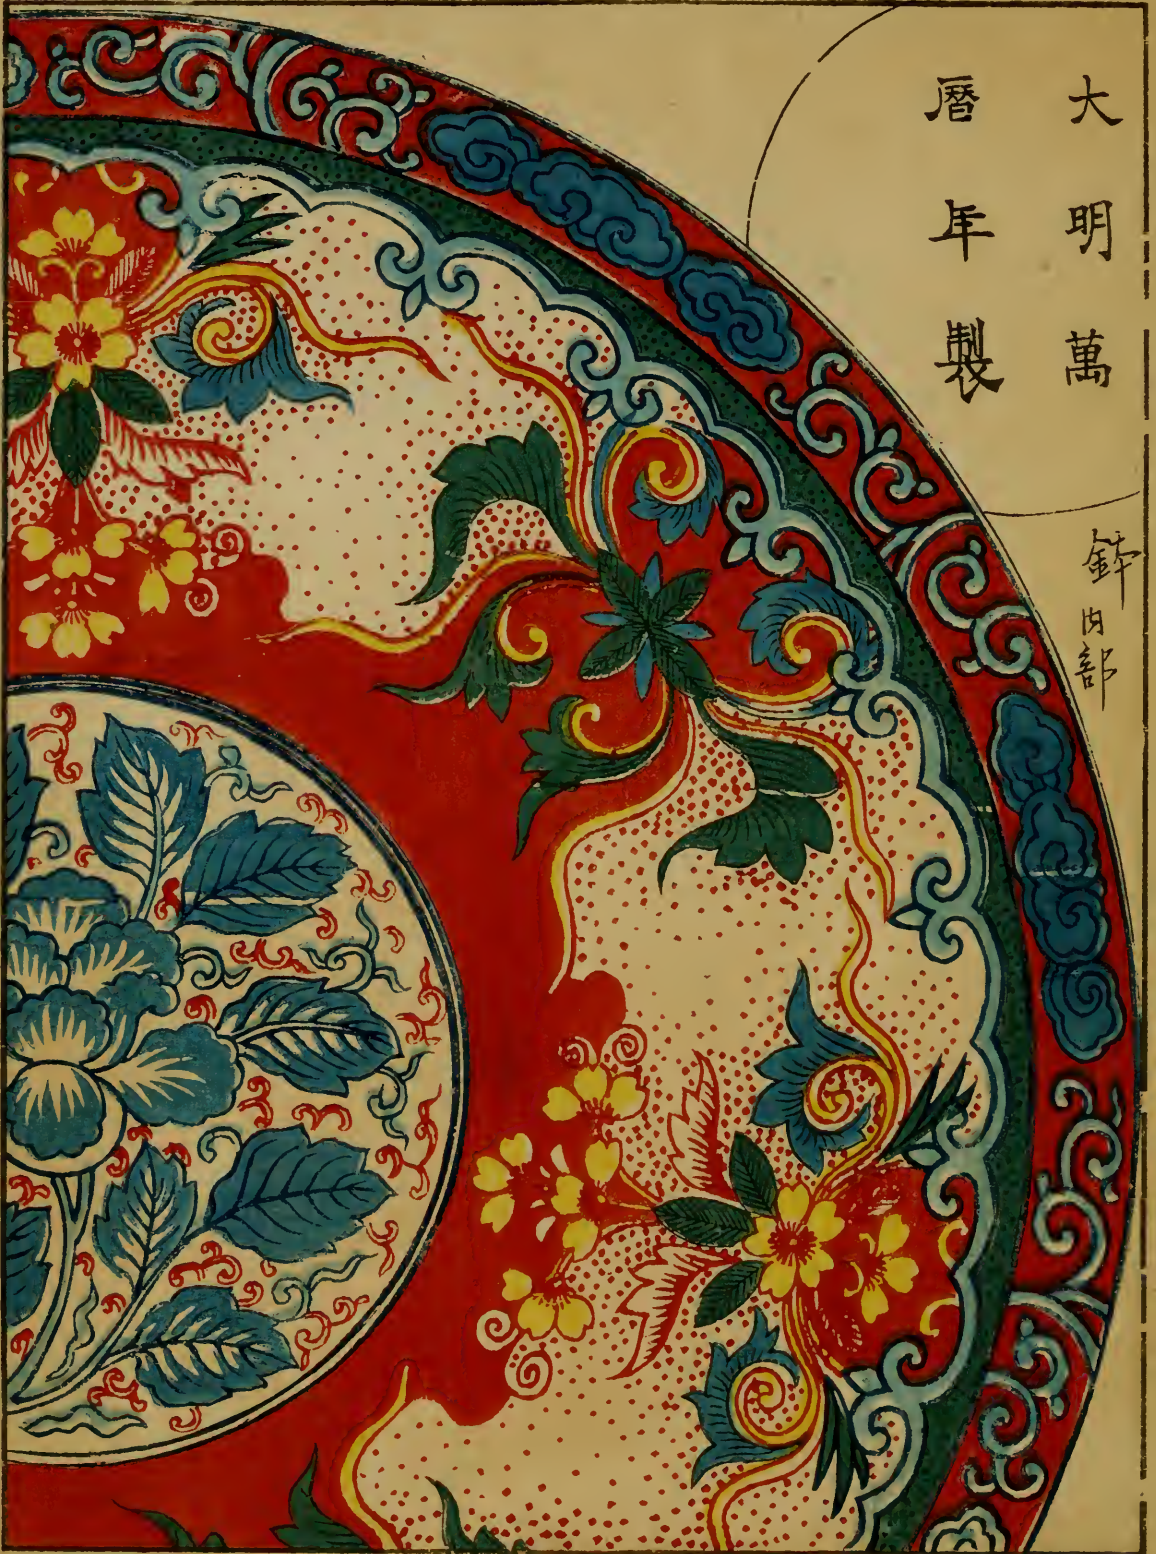 大明萬
曆年製
鉢内部